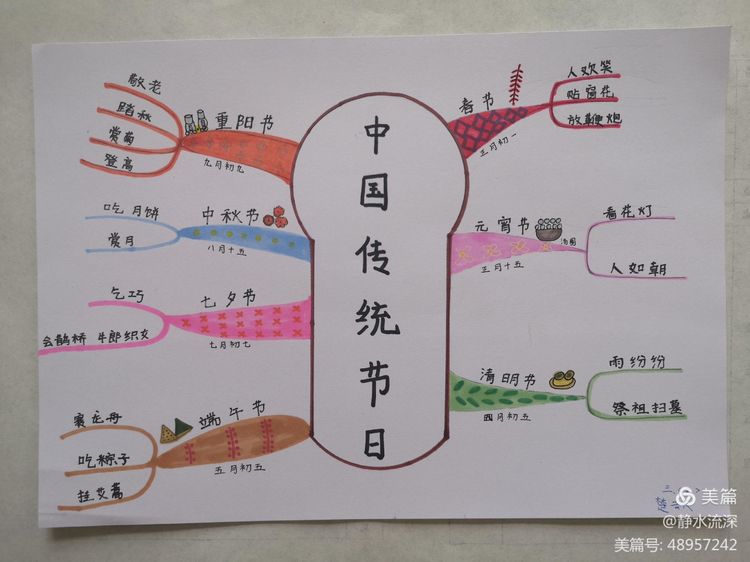 中国传统节日
春节
正月初一
人欢笑
贴窗花
放鞭炮
元宵节
汤圆
正月十五
看花灯
人如朝
清明节
四月初五
雨纷纷
祭祖扫墓
重阳节
九月初九
敬老
踏秋
赏菊
登高
中秋节
八月十五
吃月饼
赏月
七夕节
七月初七
乞巧
会鹊桥 牛郎织女
端午节
五月初五
赛龙舟
吃粽子
挂艾蒿
美篇
@静水流深
美篇号: 48957242